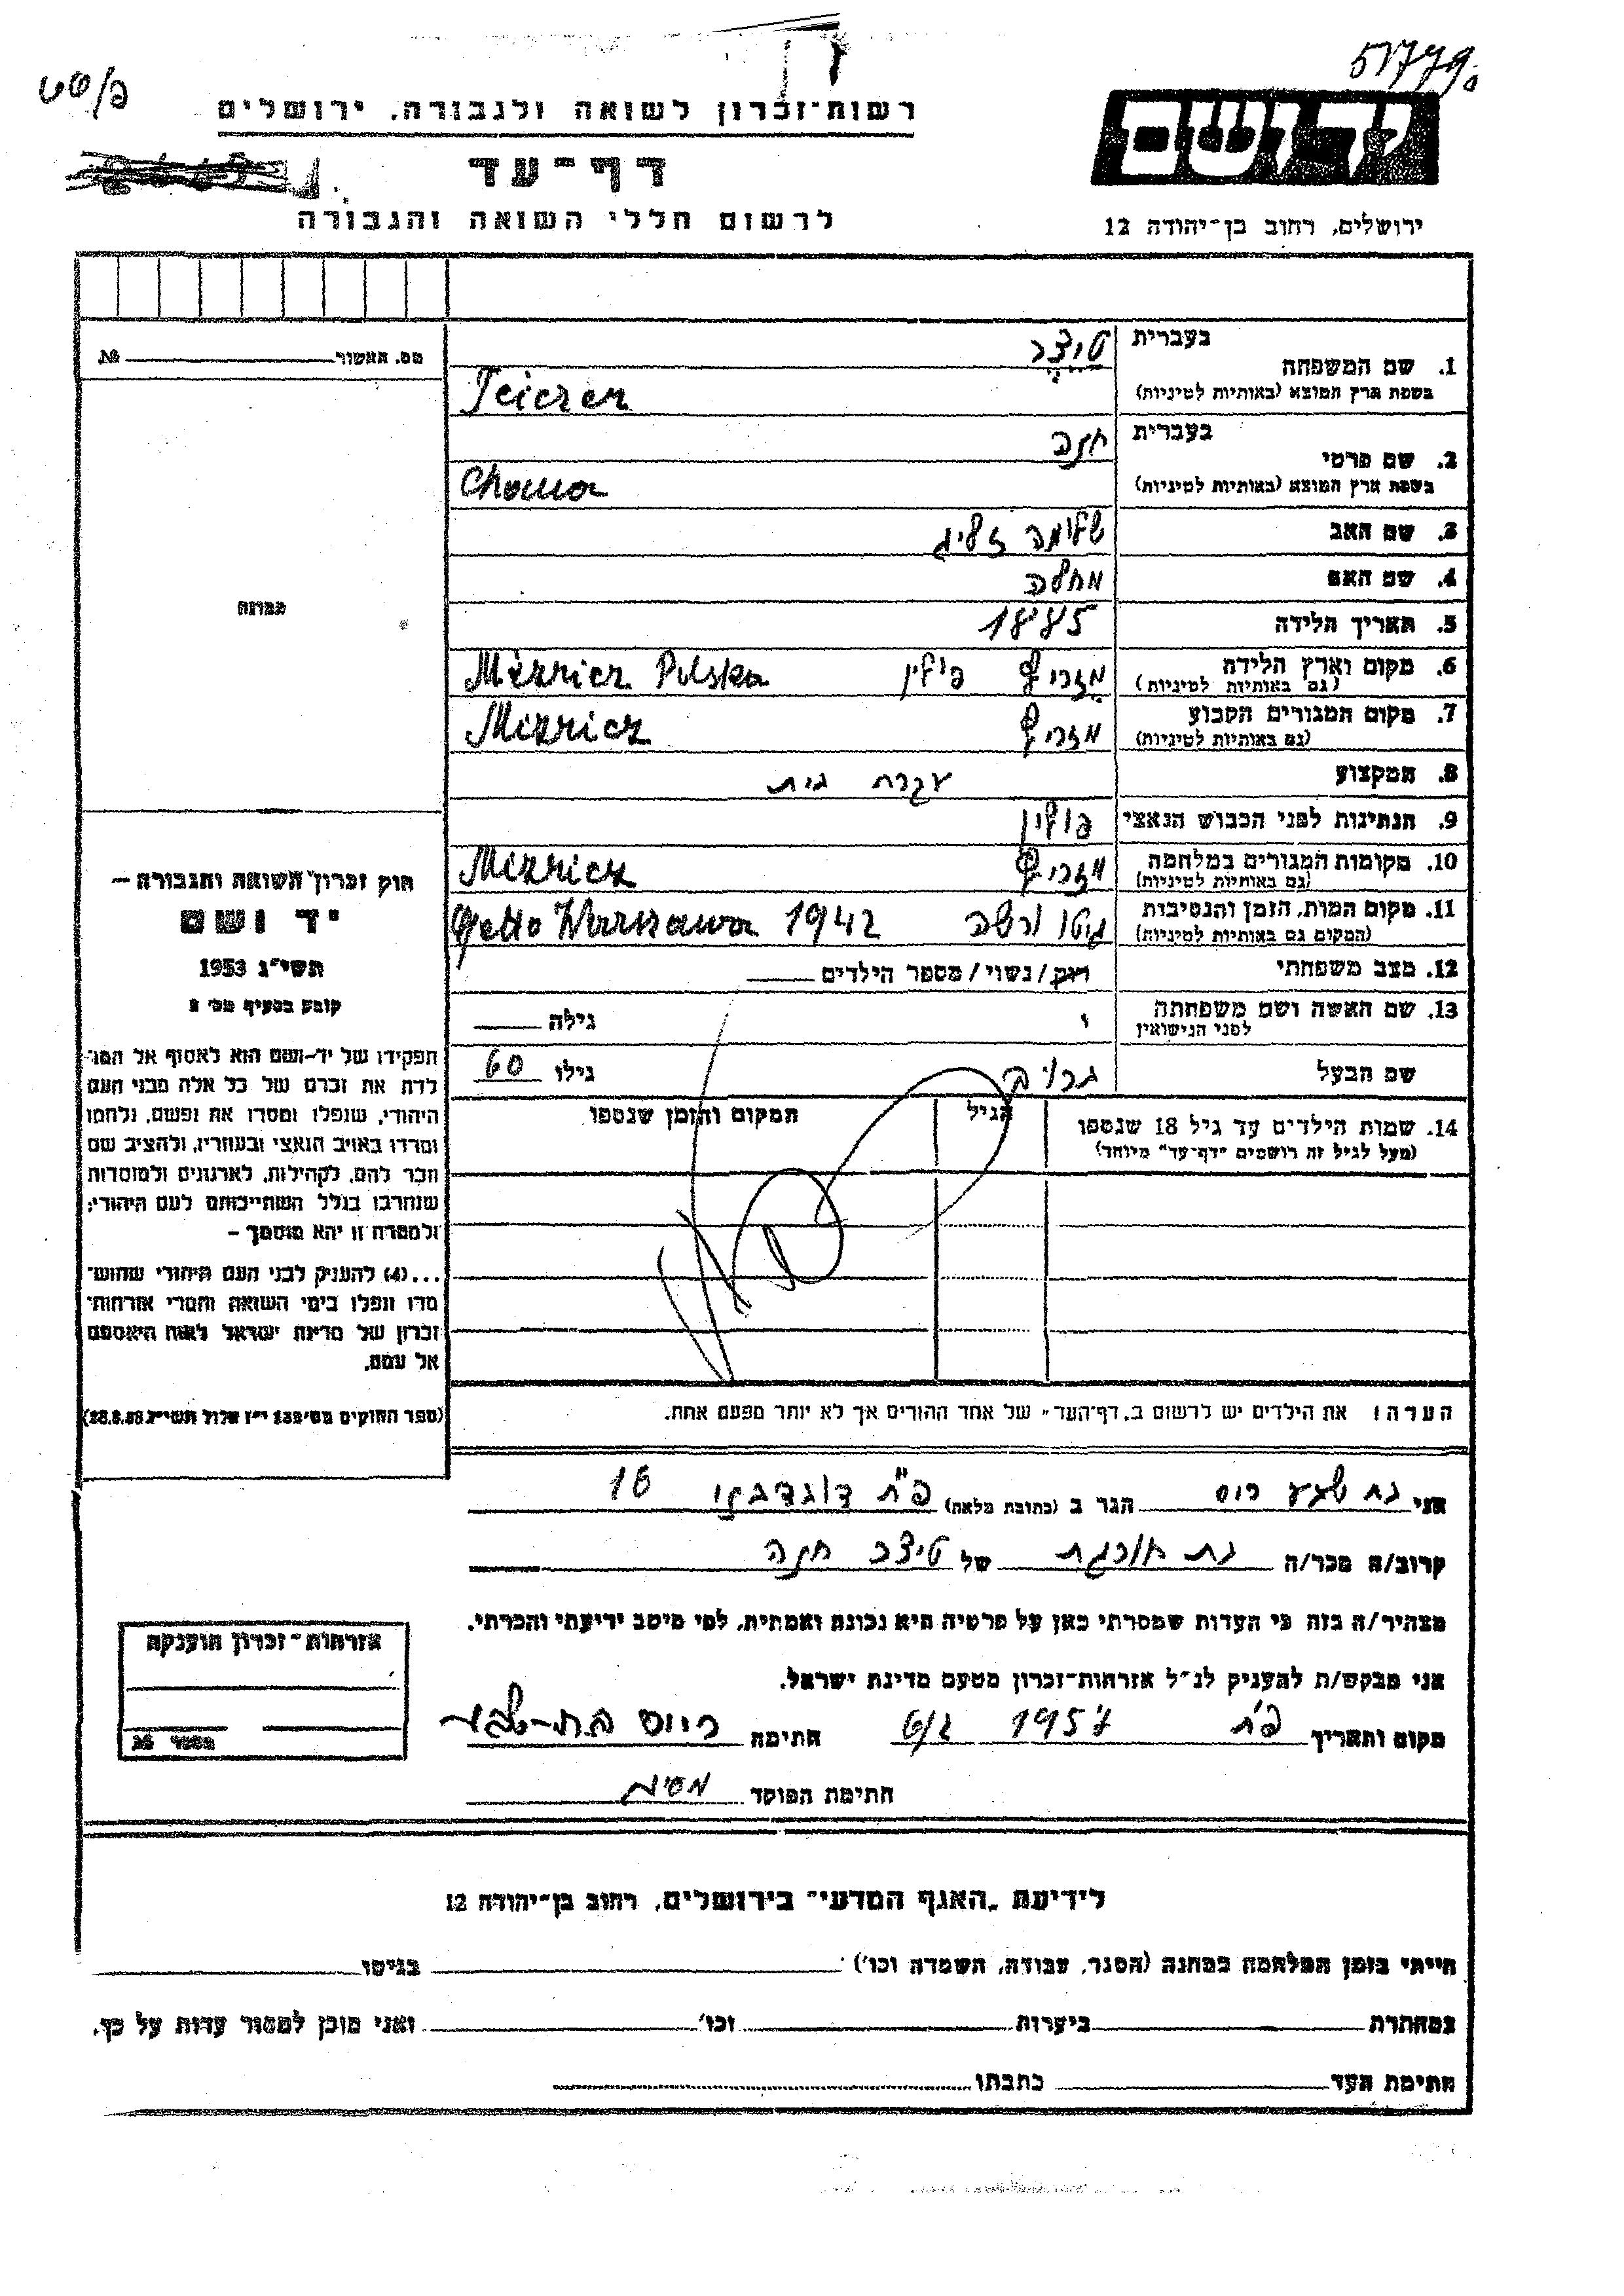 רשות-זכרון לשואה ולגבורה, ירושלים
דף-עד
לרשום חללי השואה והגבורה
יד ושם
ירושלים, רחוב בן-יהודה 12
מס. האשור №
תמונה
1. שם המשפחה בעברית טיצר
בשפת ארץ המוצא (באותיות לטיניות) Teiczer
2. שם פרטי בעברית חנה
בשפת ארץ המוצא (באותיות לטיניות) Chana
3. שם האב שלומה זליג
4. שם האם מחלה
5. תאריך הלידה 1885
6. מקום וארץ הלידה מזריץ פולין Mezricz Polska
(גם באותיות לטיניות)
7. מקום המגורים הקבוע מזריץ Mizricz
(גם באותיות לטיניות)
8. המקצוע עקרת בית
9. הנתינות לפני הכבוש הנאצי פולין
10. מקומות המגורים במלחמה מזריץ Mizricz
(גם באותיות לטיניות)
11. מקום המות, הזמן והנסיבות גיטו ורשה Getto Warszawa 1942
(המקום גם באותיות לטיניות)
12. מצב משפחתי רווק/נשוי/מספר הילדים
13. שם האשה ושם משפחתה גילה
לפני הנישואין
שם הבעל גילו 60
14. שמות הילדים עד גיל 18 שנספו הגיל המקום והזמן שנספו
(מעל לגיל זה רושמים "דף-עד" מיוחד)
הערה: את הילדים יש לרשום ב"דף-העד" של אחד ההורים אך לא יותר מפעם אחת.
חוק זכרון השואה והגבורה –
יד ושם
תשי"ג 1953
קובע בסעיף מס' 2
תפקידו של יד-ושם הוא לאסוף אל המו־
לדת את זכרם של כל אלה מבני העם
היהודי, שנפלו ומסרו את נפשם, נלחמו
ומרדו באויב הנאצי ובעוזריו, ולהציב שם
וזכר להם, לקהילות, לארגונים ולמוסדות
שנחרבו בגלל השתייכותם לעם היהודי;
ולמטרה זו יהא מוסמך –
...(4) להעניק לבני העם היהודי שהוש־
מדו ונפלו בימי השואה והמרי אזרחות־
זכרון של מדינת ישראל לאות היאספם
אל עמם.
(ספר החוקים מס' 132 י"ז אלול תשי"ג 28.8.53)
אני הגר ב (כתובת מלאה) פ"ת 16
קרוב/ה מכר/ה של טיצר חנה
מצהיר/ה בזה כי העדות שמסרתי כאן על פרטיה היא נכונה ואמתית, לפי מיטב ידיעתי והכרתי.
אני מבקש/ת להעניק לנ"ל אזרחות-זכרון מטעם מדינת ישראל.
מקום ותאריך פ"ת 1957 חתימה
חתימת הפוקד
אזרחות-זכרון הוענקה
מספר №
לידיעת "האגף המדעי" בירושלים, רחוב בן-יהודה 12
הייתי בזמן המלחמה במחנה (הסגר, עבודה, השמדה וכו') בגיטו
במחתרת ביערות וכו' ואני מוכן למסור עדות על כך.
חתימת העד כתבתו